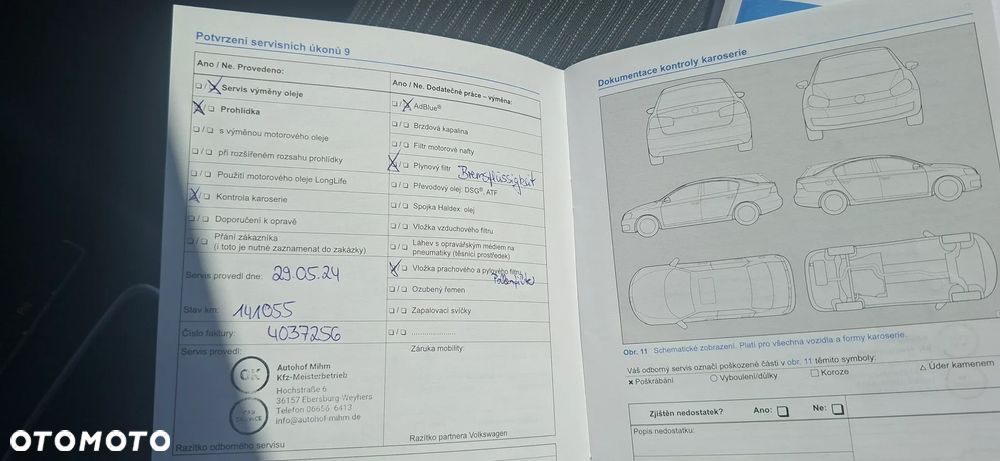 Potvrzení servisních úkonů 9
Ano / Ne. Provedeno:
Servis výměny oleje
Prohlídka
s výměnou motorového oleje
při rozšířeném rozsahu prohlídky
Použití motorového oleje LongLife
Kontrola karoserie
Doporučení k opravě
Přání zákazníka
(i toto je nutné zaznamenat do zakázky)
Servis provedl dne: 29.05.24
Stav km: 141055
Číslo faktury: 4037256
Servis provedl:
OK
Autohof Mihm
Kfz-Meisterbetrieb
Hochstraße 6
36157 Ebersburg-Weyhers
Telefon 06656 6413
info@autohof-mihm.de
Razítko odborného servisu
Ano / Ne. Dodatečné práce – výměna:
AdBlue®
Brzdová kapalina
Filtr motorové nafty
Plynový filtr Bremsflüssigkeit
Převodový olej: DSG®, ATF
Spojka Haldex: olej
Vložka vzduchového filtru
Láhev s opravářským médiem na
pneumatiky (těsnicí prostředek)
Vložka prachového a pylového filtru
Pollenfilter
Ozubený řemen
Zapalovací svíčky
Záruka mobility:
Razítko partnera Volkswagen
Dokumentace kontroly karoserie
Obr. 11 Schematické zobrazení. Platí pro všechna vozidla a formy karoserie.
Váš odborný servis označí poškozené části v obr. 11 těmito symboly:
× Poškrábání ○ Vyboulení/důlky □ Koroze △ Úder kamenem
Zjištěn nedostatek? Ano: Ne:
Popis nedostatku:
OTOMOTO